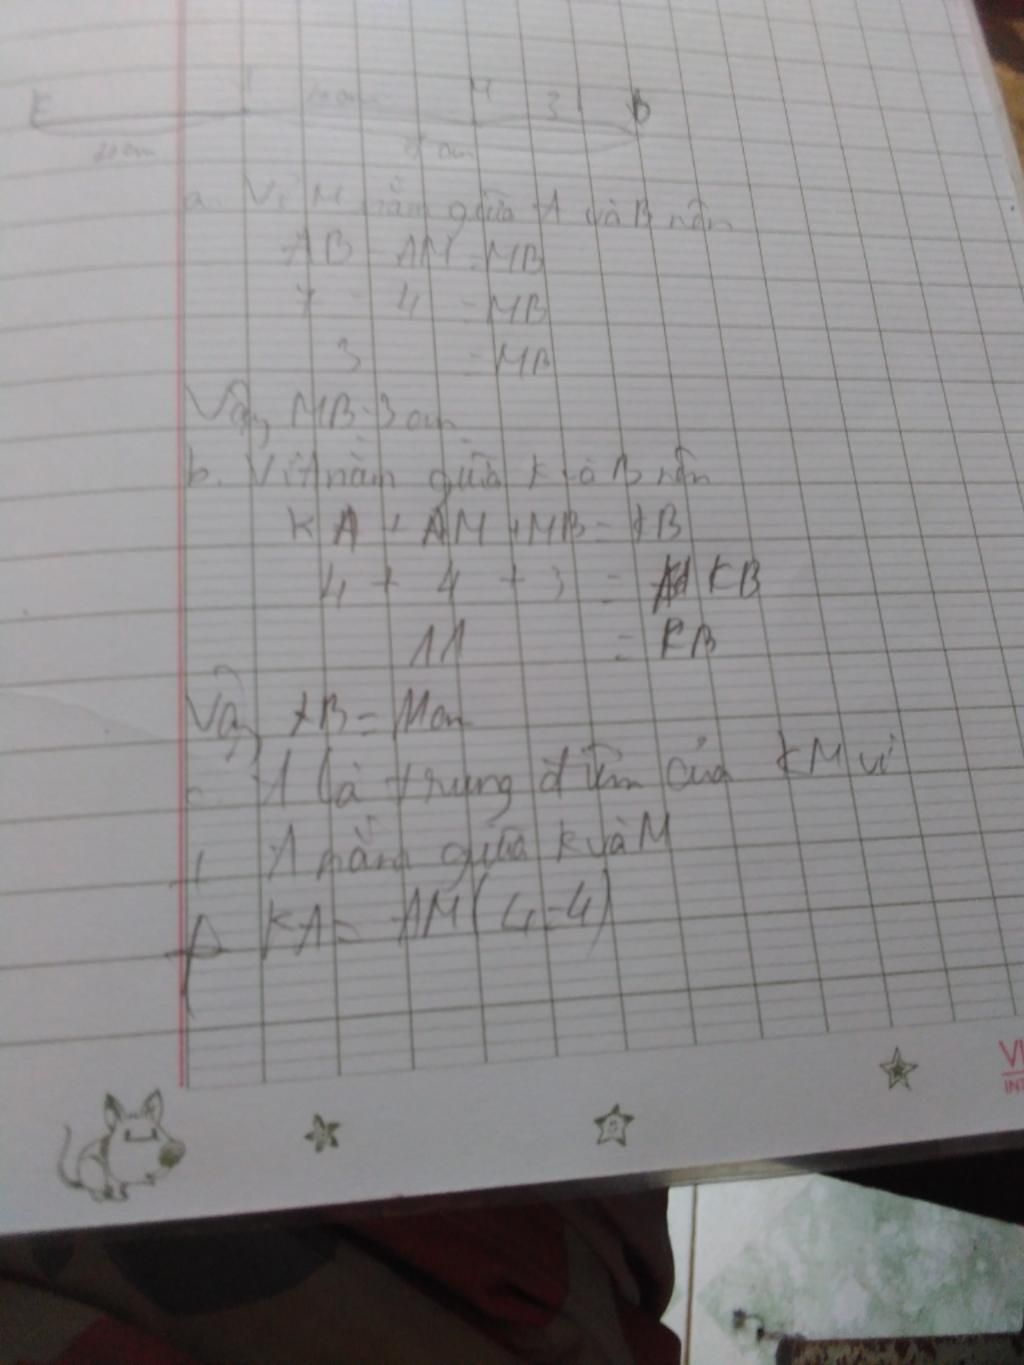 K M 3 B
4cm 7 cm
a. Vì M nằm giữa A và B nên
AB - AM = MB
7 - 4 = MB
3 = MB
Vậy MB = 3 cm
b. Vì A nằm giữa K và B nên
KA + AM + MB = KB
4 + 4 + 3 = KB
11 = KB
Vậy KB = 11 cm
c. A là trung điểm của KM vì
A nằm giữa K và M
KA = AM (4=4)
VI
INT